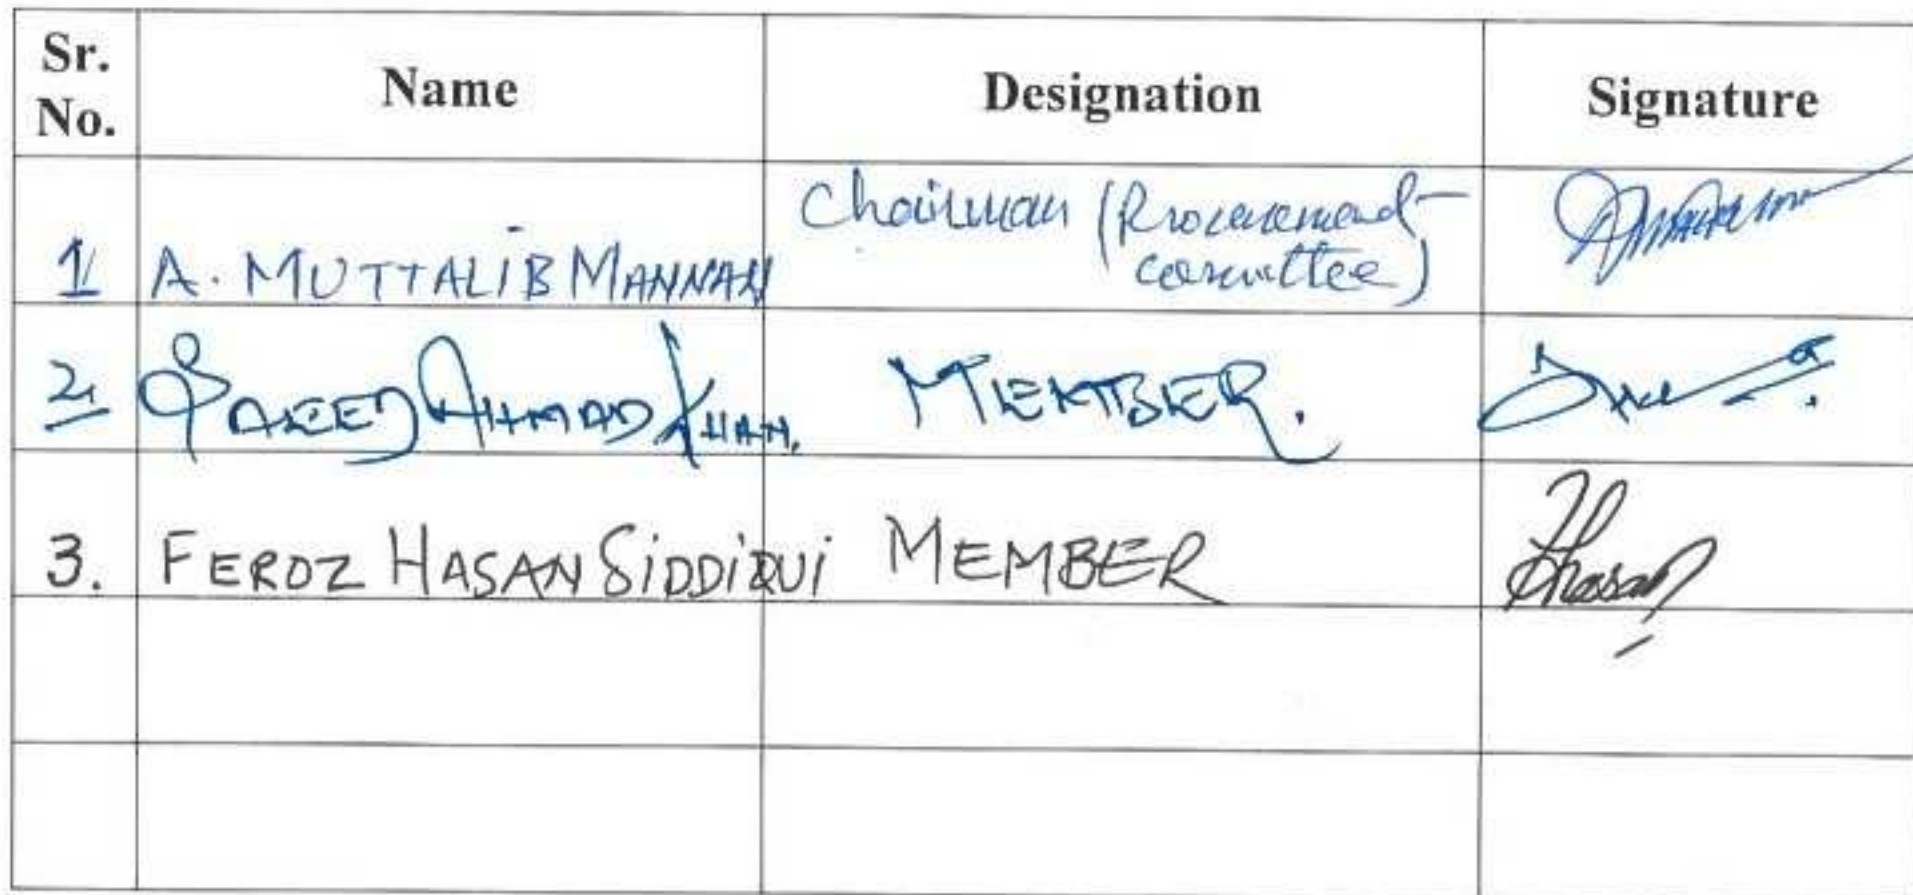 Sr. No. Name Designation Signature
1 A. MUTTALIB MANNAN Chairman (Procurement
committee)
2 SAEED AHMAD KHAN. MEMBER.
3. FEROZ HASAN SIDDIQUI MEMBER Fhasan